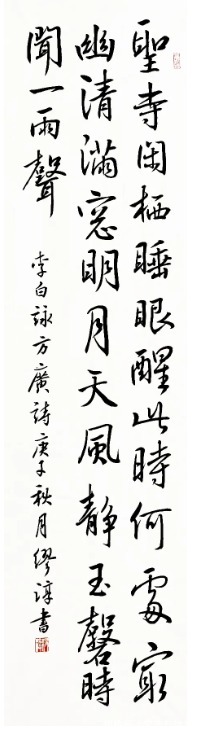 聖寺閑栖睡眼醒此時何處冣
幽清滿窓明月天風靜玉磬時
聞一兩聲
李白詠方廣詩庚子秋月繆諄書